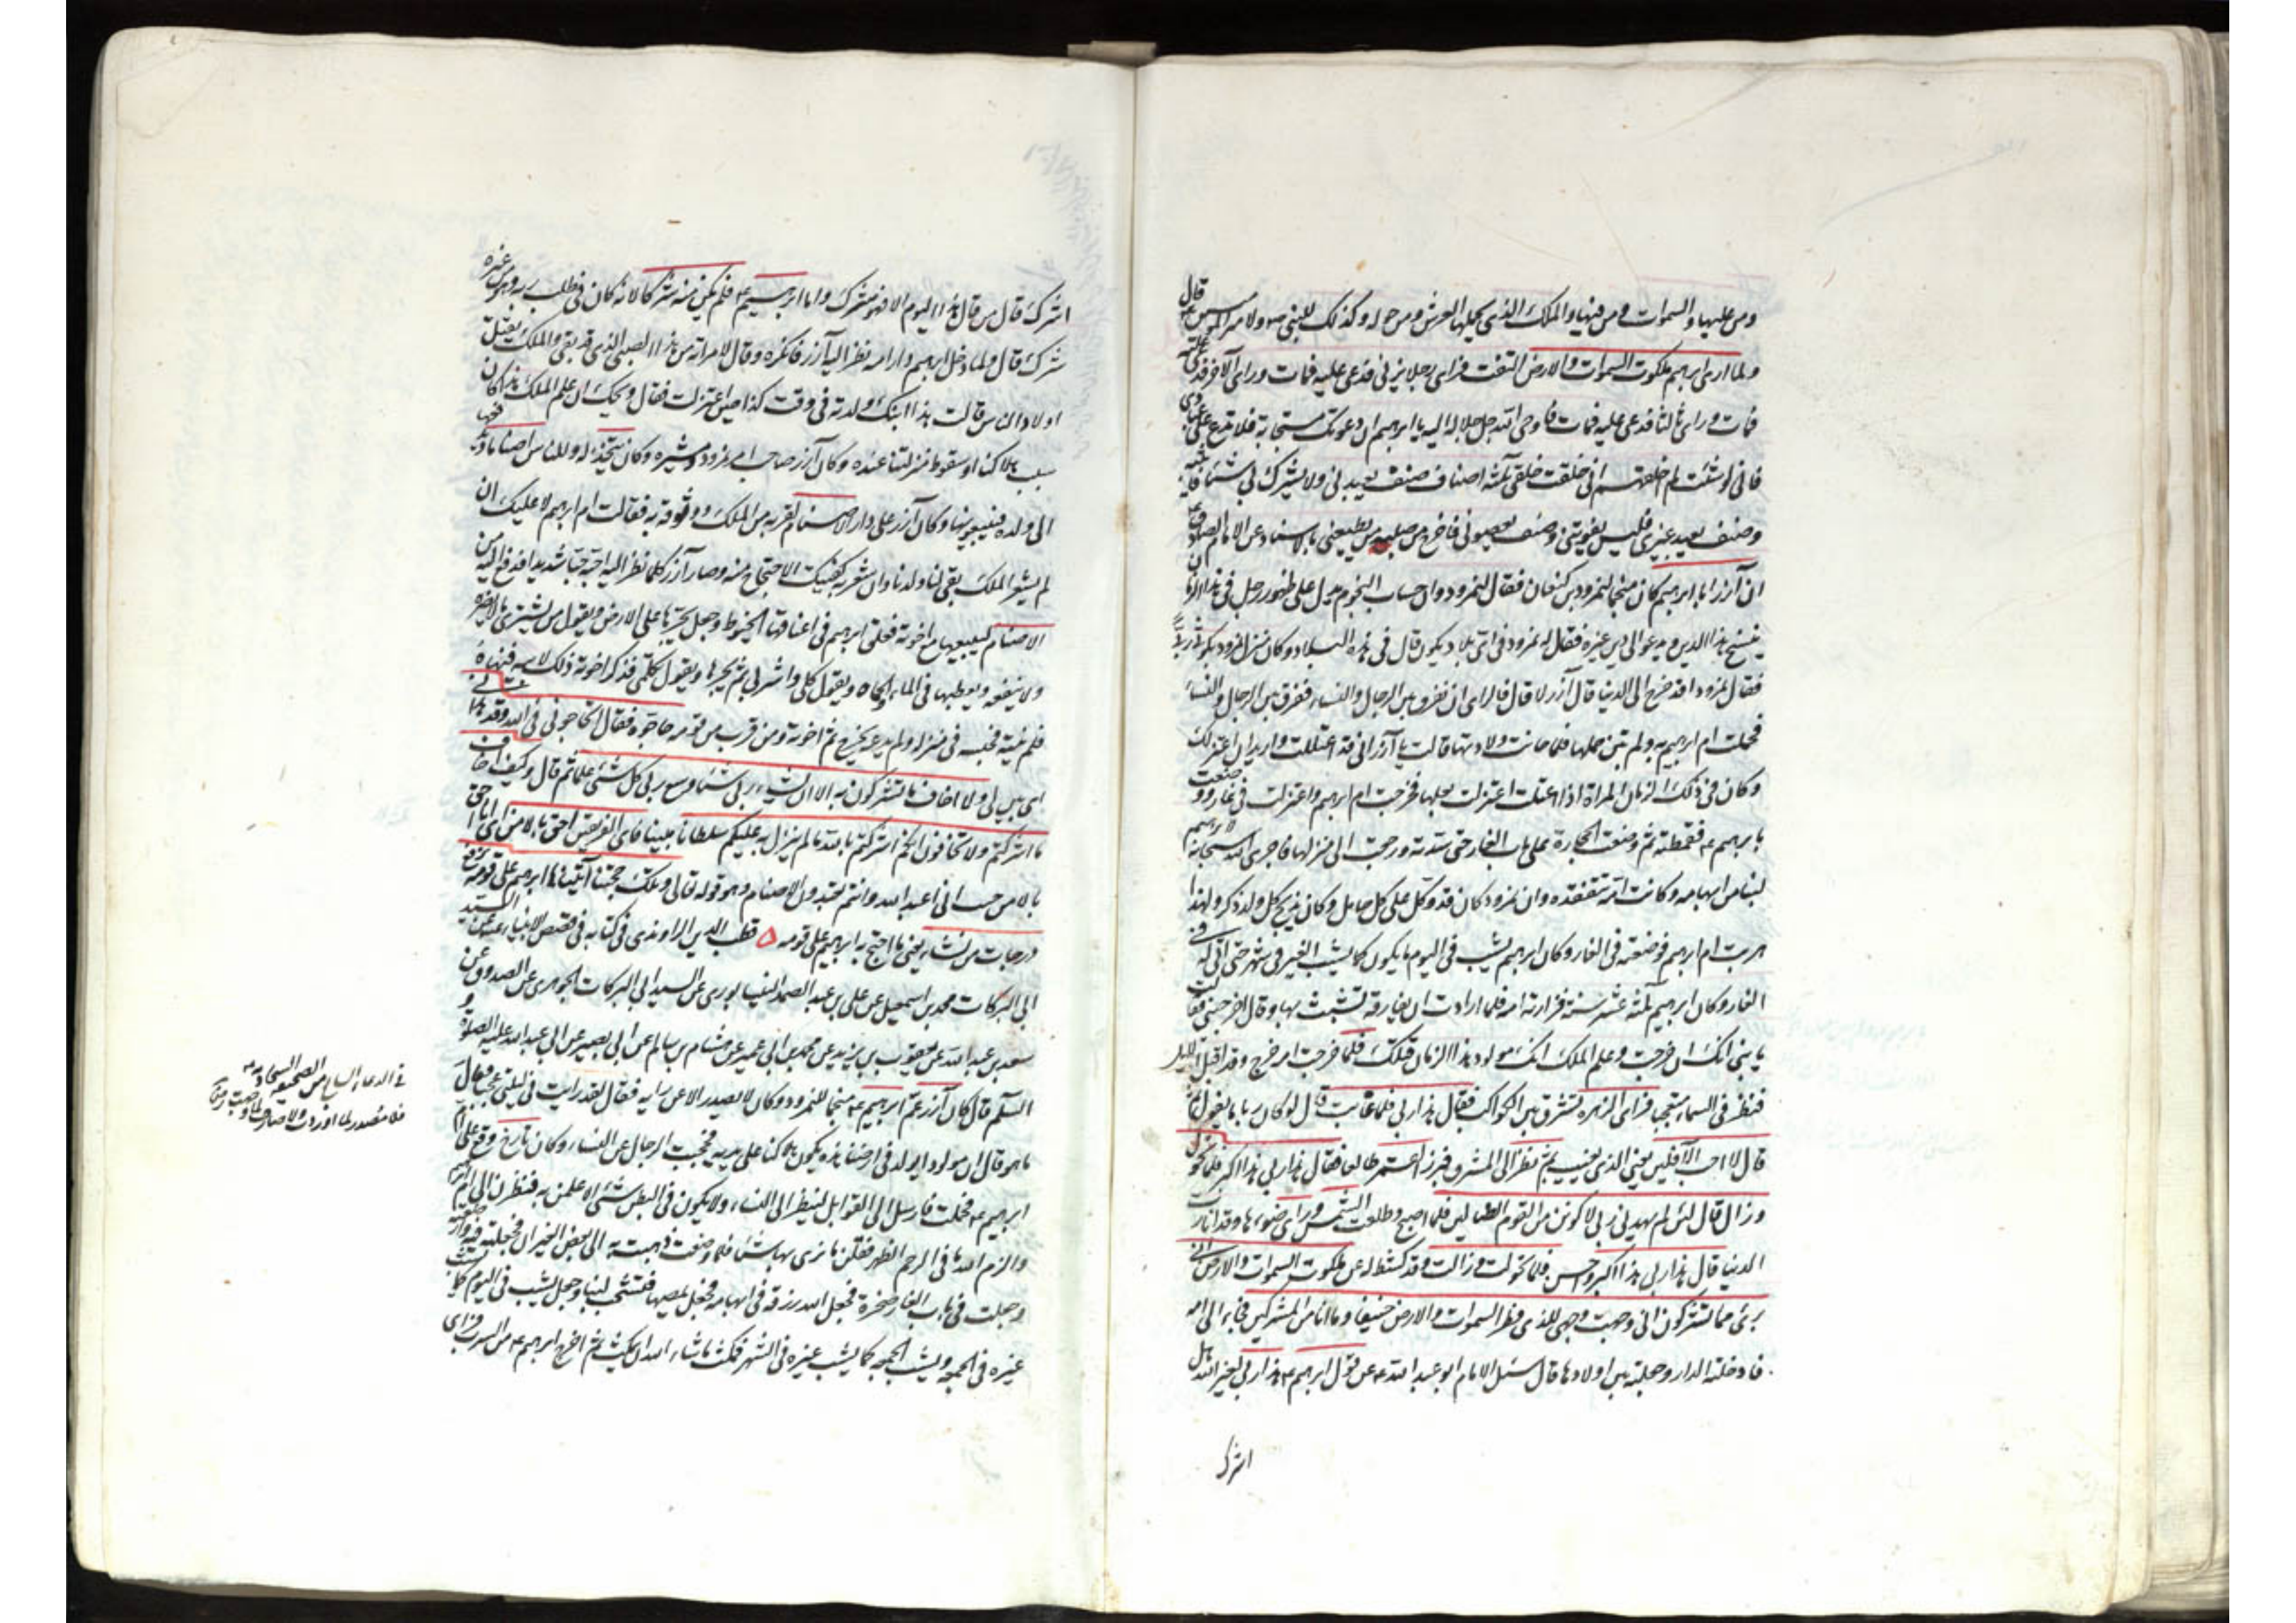 ومن عليها والسموات ومن فيها والملك الذي يحملها والعرش ومن حوله وكذلك للنبي ص ولامير المؤمنين ع قال
ولما اري ابرهيم ملكوت السموات والارض التفت فراى رجلا يزني فدعى عليه فمات وراى آخر فدعى عليه
فمات وراى ثالثا فدعى عليه فمات فاوحى الله جل جلاله اليه يا ابرهيم ان دعوتك مستجابة فلا تدع على عبادي
فاني لو شئت لم اخلقهم اني خلقت خلقي ثلثه اصناف صنف يعبدني ولا يشرك بي شيئا فاثيبه
وصنف يعبد غيري فليس يفوتني وصنف يعبد غيري فاخرج من صلبه من يعبدني بالاسناد عن الامام الصادق ع
ان آزر ابا ابرهيم كان منجما لنمرود بن كنعان فقال لنمرود ان حساب النجوم يدل على ظهور رجل في هذا الزمان
ينسخ هذا الدين ويدعو الى دين غيره فقال له نمرود في اي بلاد يكون قال في هذه البلاد وكان منزل نمرود بكوثى ربى
فقال نمرود قد خرج الى الدنيا قال آزر لا قال فارى ان نفرق بين الرجال والنساء ففرق بين الرجال والنساء
فحملت ام ابرهيم به ولم يتبين حملها فلما حانت ولادتها قالت يا آزر اني قد اعتللت واريد ان اعتزل عنك
وكان في ذلك الزمان المراة اذا اعتلت اعتزلت بعلها فخرجت ام ابرهيم واعتزلت في غار ووضعت
بابرهيم ع فقمطته ثم وضعت الحجارة على باب الغار حتى سدته ورجعت الى منزلها فاجرى الله سبحانه لابرهيم
لبنا من ابهامه وكانت امه تتفقده وان نمرود كان قد وكل على كل حامل وكان يذبح كل ولد ذكر ولهذا
هربت ام ابرهيم فوضعته في الغار وكان ابرهيم يشب في اليوم ما يكون كما يشب الغير في شهر حتى اتى له في
الغار وكان ابرهيم ثلثه عشر سنة فزارته امه فلما ارادت ان يفارقه تشبث بها وقال اخرجيني فقالت
يا بني انك ان خرجت وعلم الملك انك مولود هذا الزمان قتلك فلما خرجت امه خرج وقد اقبل الليل
فنظر في السماء متعجبا فراى الزهره تشرق بين الكواكب فقال هذا ربي فلما غابت قال لو كان ربا ما يغول ثم
قال لا احب الآفلين يعني الذي يغيب ثم نظر الى المشرق فبرز القمر طالعا فقال هذا ربي هذا اكبر فلما تحول
وزال قال لئن لم يهدني ربي لاكونن من القوم الضالين فلما اصبح وطلعت الشمس وراى ضوءها وقد انارت
الدنيا قال هذا ربي هذا اكبر واحسن فلما تحولت وزالت وقد كشط له عن ملكوت السموات والارض اني
برئ مما تشركون اني وجهت وجهي للذي فطر السموات والارض حنيفا وما انا من المشركين فجاء الى امه
فادخلته الدار وجعلته بين اولادها قال سئل الامام ابو عبد الله ع عن قول ابرهيم ع هذا ربي لغير الله هل
اشرك
اشرك قال من قال هذا اليوم الا فهو مشرك واما ابرهيم ع فلم يكن منه شركا لانه كان في طلب ربه وهو من غيره
شرك قال ولما دخل ابرهيم داره امه نظر اليه آزر فانكره وقال لامراته من هذا الصبي الذي قد بقي والملك يقتل
اولاد الناس قالت هذا ابنك ولدته في وقت كذا حين اعتزلت فقال ويحك ان علم الملك بهذا كان
سبب هلاكنا او سقوط منزلتنا عنده وكان آزر صاحب امر نمرود ومشيره وكان يتخذ له وللناس اصناما ويدفعها
الى ولده فيبيعونها وكان آزر على دار الاصنام لقربه من الملك ووثوقه به فقالت ام ابرهيم لا عليك ان
لم يشعر الملك بقي لنا ولدنا وان شعر به كفيتك الاحتجاج منه وصار آزر كلما نظر اليه احبه حبا شديدا فدفع اليه من
الاصنام ليبيعها مع اخوته فعلق ابرهيم في اعناقها الخيوط وجعل يجرها على الارض ويقول من يشتري ما لا يضره
ولا ينفعه ويعطبها في الماء والحماة ويقول كلي واشربي ثم يجرها ويقول تكلمي فذكر اخوته ذلك لابيه فنهاه
فلم ينته فحبسه في منزله ولم يدعه يخرج ثم اخوته ومن قرب من قومه حاجوه فقال اتحاجوني في الله وقد هداني
اي بين لي ولا اخاف ما تشركون به الا ان يشاء ربي شيئا وسع ربي كل شئ علما ثم قال وكيف اخاف
ما اشركتم ولا تخافون انكم اشركتم بالله ما لم ينزل به عليكم سلطانا مبينا فاي الفريقين احق بالامن اي انا احق
بالامن حيث اني اعبد الله وانتم تعبدون الاصنام وهو قوله تعالى وتلك حجتنا آتيناها ابرهيم على قومه نرفع
درجات من نشاء يعني ما احتج به ابرهيم على قومه ه قطب الدين الراوندي في كتابه في قصص الانبياء عن السيد
ابي البركات محمد بن اسمعيل عن علي بن عبد الصمد النيسابوري عن السيد ابي البركات الجوهري عن الصدوق عن
سعد بن عبد الله عن يعقوب بن يزيد عن محمد بن ابي عمير عن هشام بن سالم عن ابي بصير عن ابي عبد الله عليه الصلوة و
السلم قال كان آزر عم ابرهيم ع منجما للنمرود وكان لا يصدر الا عن رايه فقال لقد رايت في ليلتي عجبا فقال
ما هو قال ان مولودا يولد في ارضنا هذه يكون هلاكنا على يديه فحجبت الرجال عن النساء وكان تارخ وقع على ام
ابرهيم ع فحملت فارسل الى القوابل لينظر الى النساء ولا يكون في البطن شئ الا علمن به فنظرن الى ام ابرهيم
والزم الله ما في الرحم الظهر فقلن ما نرى بها شيئا فلما وضعت ذهبت به الى بعض الغيران فجعلته فيه وارضعته
وجعلت في باب الغار صخرة فجعل الله رزقه في ابهامه فجعل يمصها فتشخب لبنا وجعل يشب في اليوم كما يشب
غيره في الجمعه ويشب الجمعه كما يشب غيره في الشهر فمكث ما شاء الله ان يمكث ثم اخرج ابرهيم ع من السرب فراى
في الدعاء السابع من الصحيفة السجادية
فلا مصدر لما اوردت ولا صارف لما وجهت